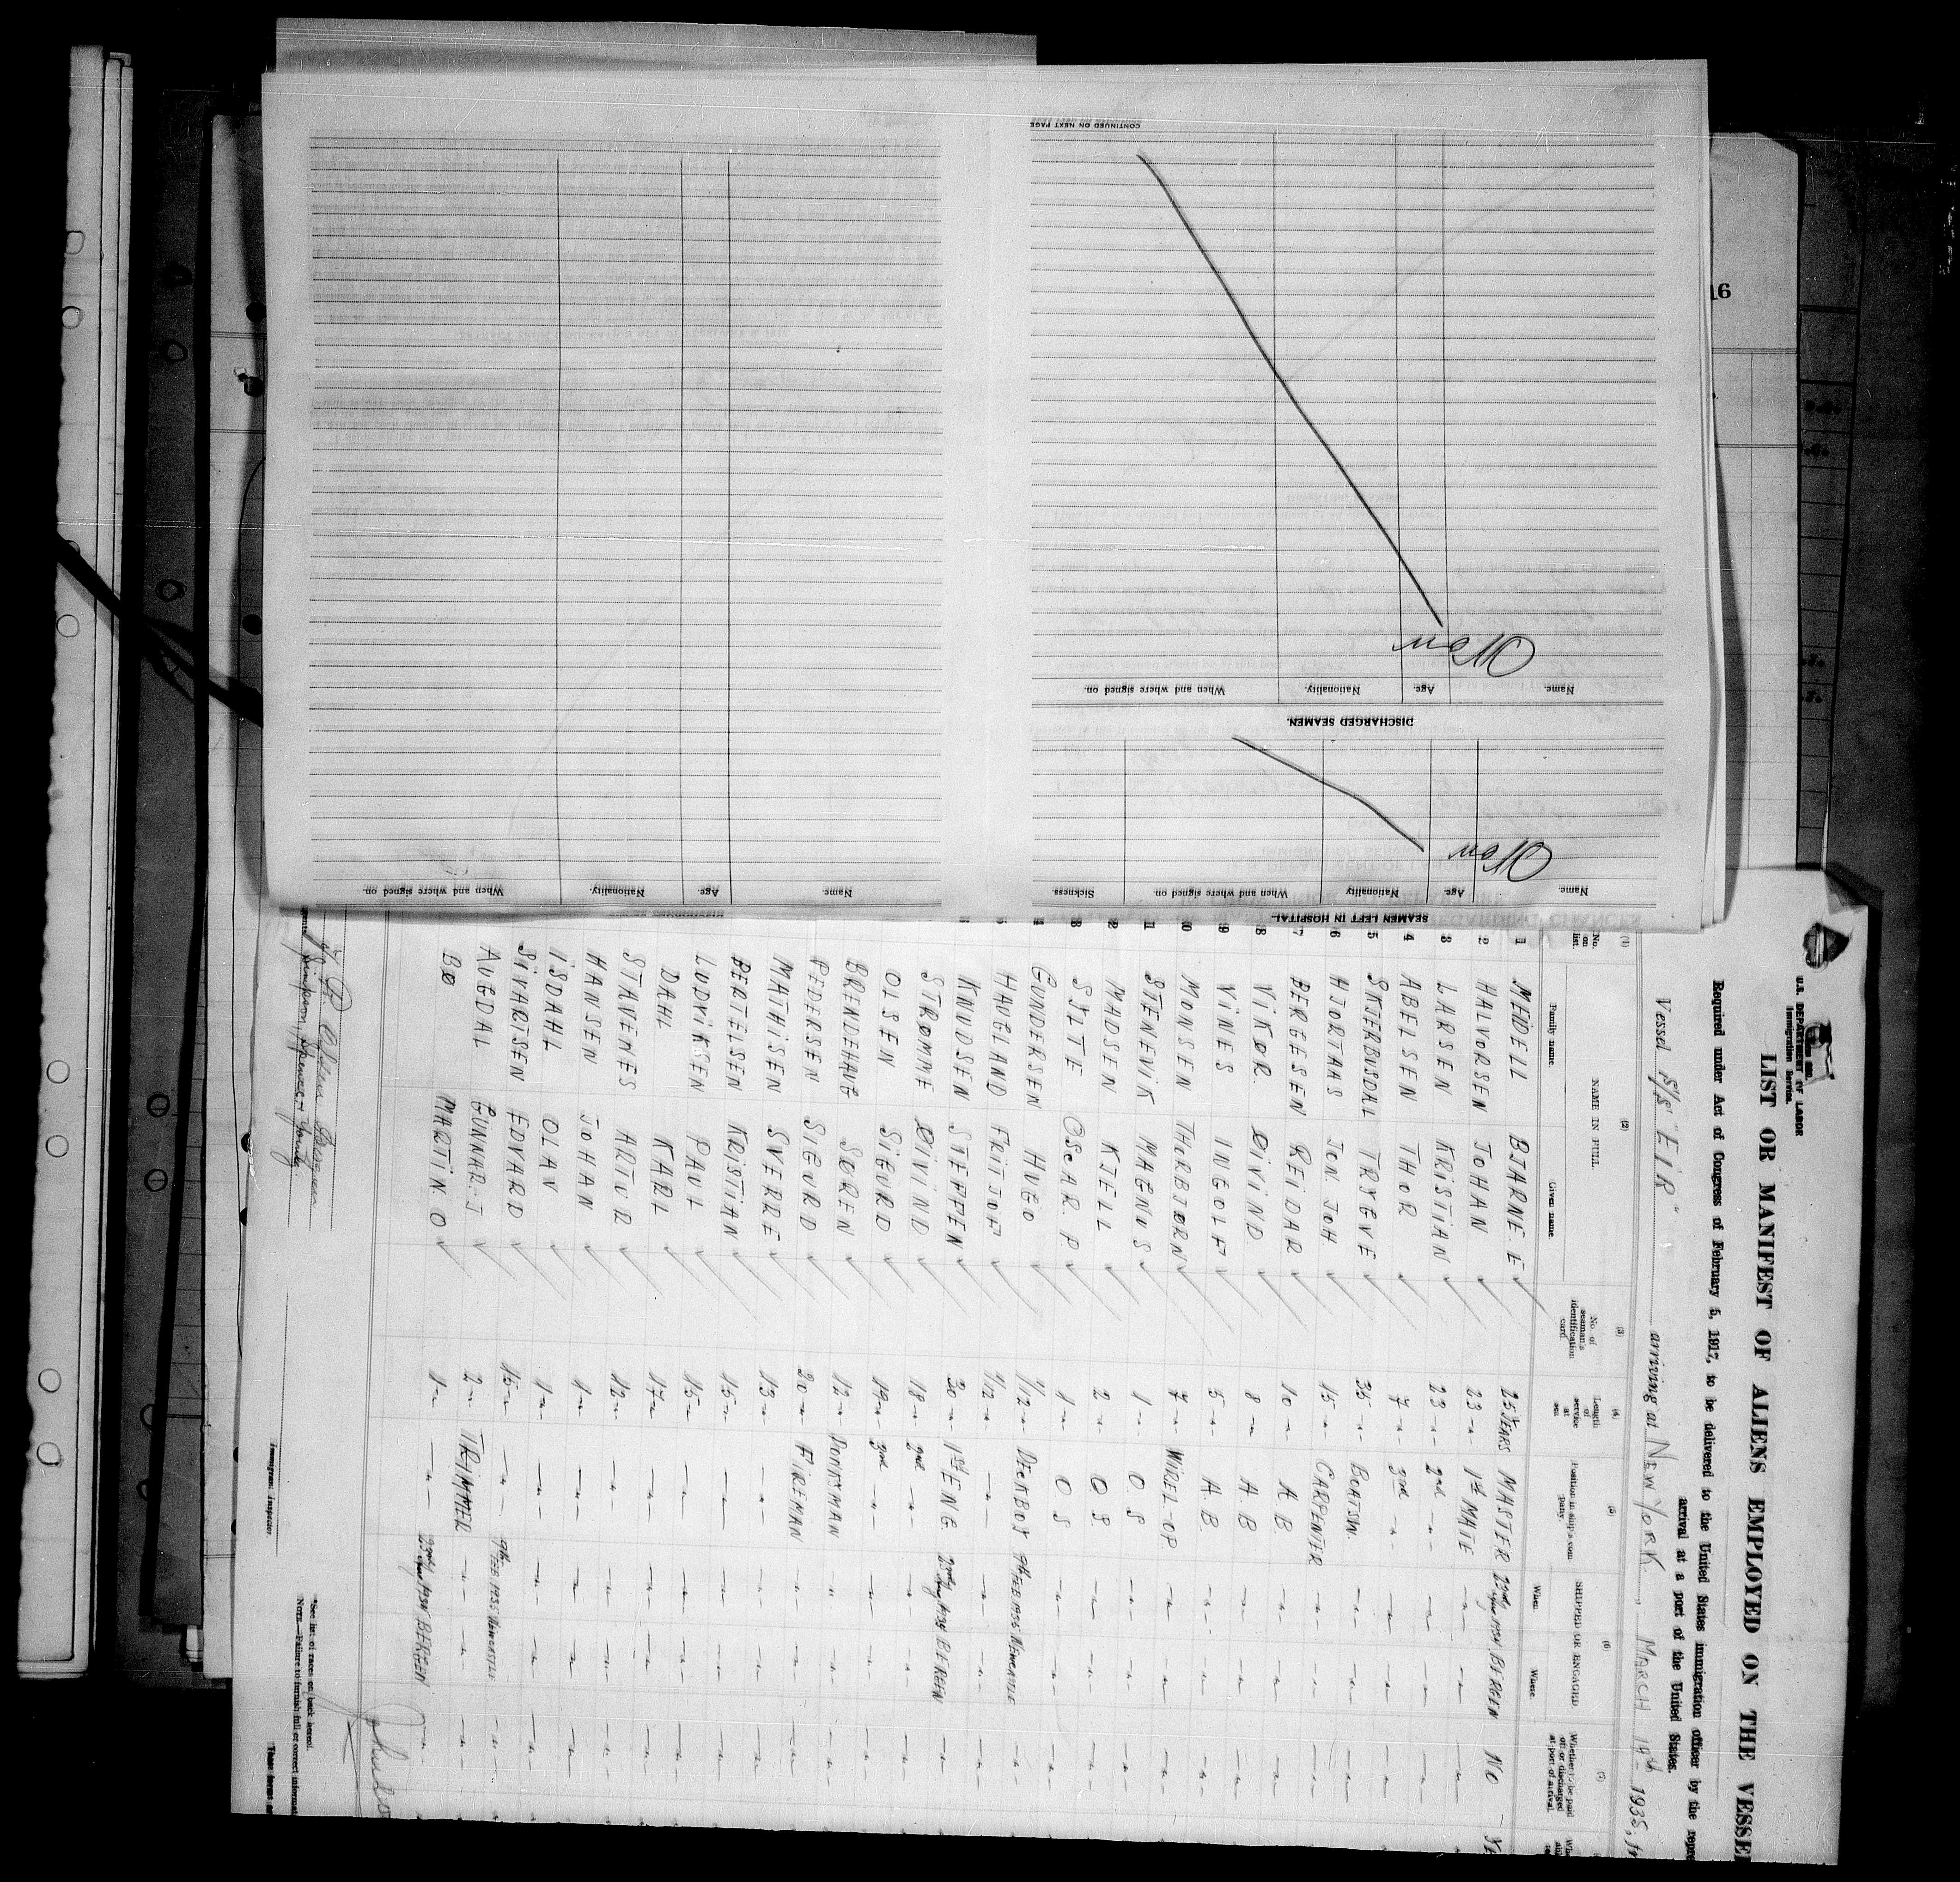 CONTINUED ON NEXT PAGE
Name.
Age.
Nationality.
When and where signed on.
DISCHARGED SEAMEN.
Name.
Age.
Nationality.
When and where signed on.
SEAMEN LEFT IN HOSPITAL
Name.
Age.
Nationality.
When and where signed on.
Sickness.
16
U.S. DEPARTMENT OF LABOR
Immigration Service.
LIST OR MANIFEST OF ALIENS EMPLOYED ON THE VESSEL
Required under Act of Congress of February 5, 1917, to be delivered to the United States immigration officer by the repre
arrival at a port of the United States.
Vessel S/S "EIR" arriving at NEW YORK, MARCH 19th 1935,
(1) (2) (3) (4) (5) (6) (7)
No. on list. NAME IN FULL Family name. Given name. No. of seaman's identification card. Length of service at sea Position in ship's company. SHIPPED OR ENGAGED When. Where. Whether to be paid off or discharged at port of arrival.
1 MEIDELL BJARNE. E 25 YEARS MASTER BERGEN NO
2 HALVORSEN JOHAN 23 -"- 1st MATE
3 LARSEN KRISTIAN 23 -"- 2nd -"-
4 ABELSEN THOR 7 -"- 3rd -"-
5 SKJERBUSDAL TRYGVE 35 -"- BOATSW.
6 HJORTAAS JON. JOH 15 -"- CARPENTER
7 BERGESEN REIDAR 10 -"- A B
8 VIKØR. ØIVIND 8 -"- A.B
9 VINES INGOLF 5 -"- A.B.
10 MONSEN THORBJØRN 7 -"- WIREL-OP
11 STENEVIK MAGNUS 1 -"- O S
12 MADSEN KJELL 2 -"- O S
13 SYLTE OSCAR. P 1 -"- O S
GUNDERSEN HUGO 1/12 -"- DECKBOY 9th FEB 1935 NEWCASTLE
HAUGLAND FRITJOF 1/12 -"-
KNUDSEN STEFFEN 30 -"- 1st ENG BERGEN
STRØMME ØIVIND 18 -"- 2nd -"-
OLSEN SIGURD 19 -"- 3rd -"-
BRENDEHAVG SØREN 12 -"- DONKMAN
PEDERSEN SIGURD 20 -"- FIREMAN
MATHISEN SVERRE 13 -"- -"-
BERTELSEN KRISTIAN 15 -"- -"-
LUDVIKSEN PAUL 15 -"- -"-
DAHL KARL 17 -"- -"-
STAVENES ARTUR 12 -"- -"-
HANSEN JOHAN 1 -"- -"-
ISDAHL OLAV 1 -"- -"-
SIVARTSEN EDVARD 15 -"- -"- 9th FEB 1935 NEWCASTLE
AUGDAL GUNNAR. J 2 -"- TRIMMER
BØ MARTIN. O 1 -"- -"- BERGEN
Immigrant Inspector.
*See list of races on back hereof.
NOTE.—Failure to furnish full or correct informat